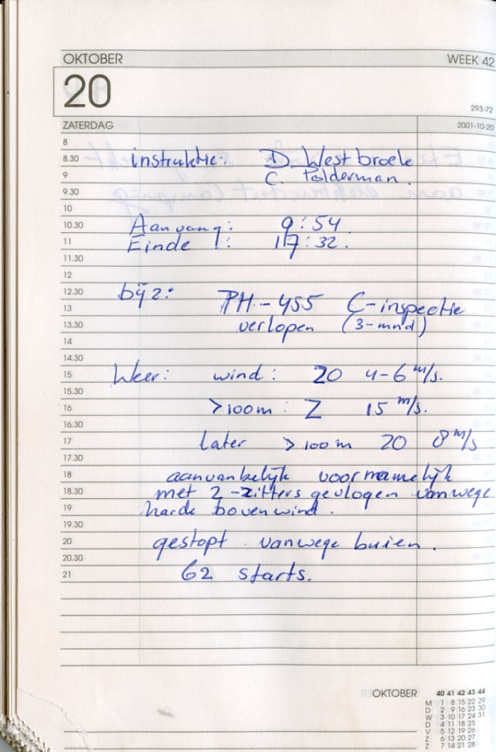 OKTOBER WEEK 42
20
293-72
ZATERDAG 2001-10-20
8
8.30 instruktie: D. Westbroek
9 C. Polderman.
9.30
10
10.30 Aanvang: 9:54
11 Einde !: 17:32.
11.30
12
12.30 bijz: PH-455 C-inspectie
13
13.30 verlopen (3-mnd)
14
14.30
15 Weer: wind: ZO 4-6 m/s.
15.30
16 >100m: Z 15 m/s.
16.30
17 Later >100m ZO 8 m/s
17.30
18 aanvankelijk voornamelijk
18.30 met 2-zitters gevlogen vanwege
19 harde bovenwind.
19.30
20 gestopt vanwege buien.
20.30
21 62 starts.
OKTOBER 40 41 42 43 44
M 1 8 15 22 29
D 2 9 16 23 30
W 3 10 17 24 31
D 4 11 18 25
V 5 12 19 26
Z 6 13 20 27
Z 7 14 21 28